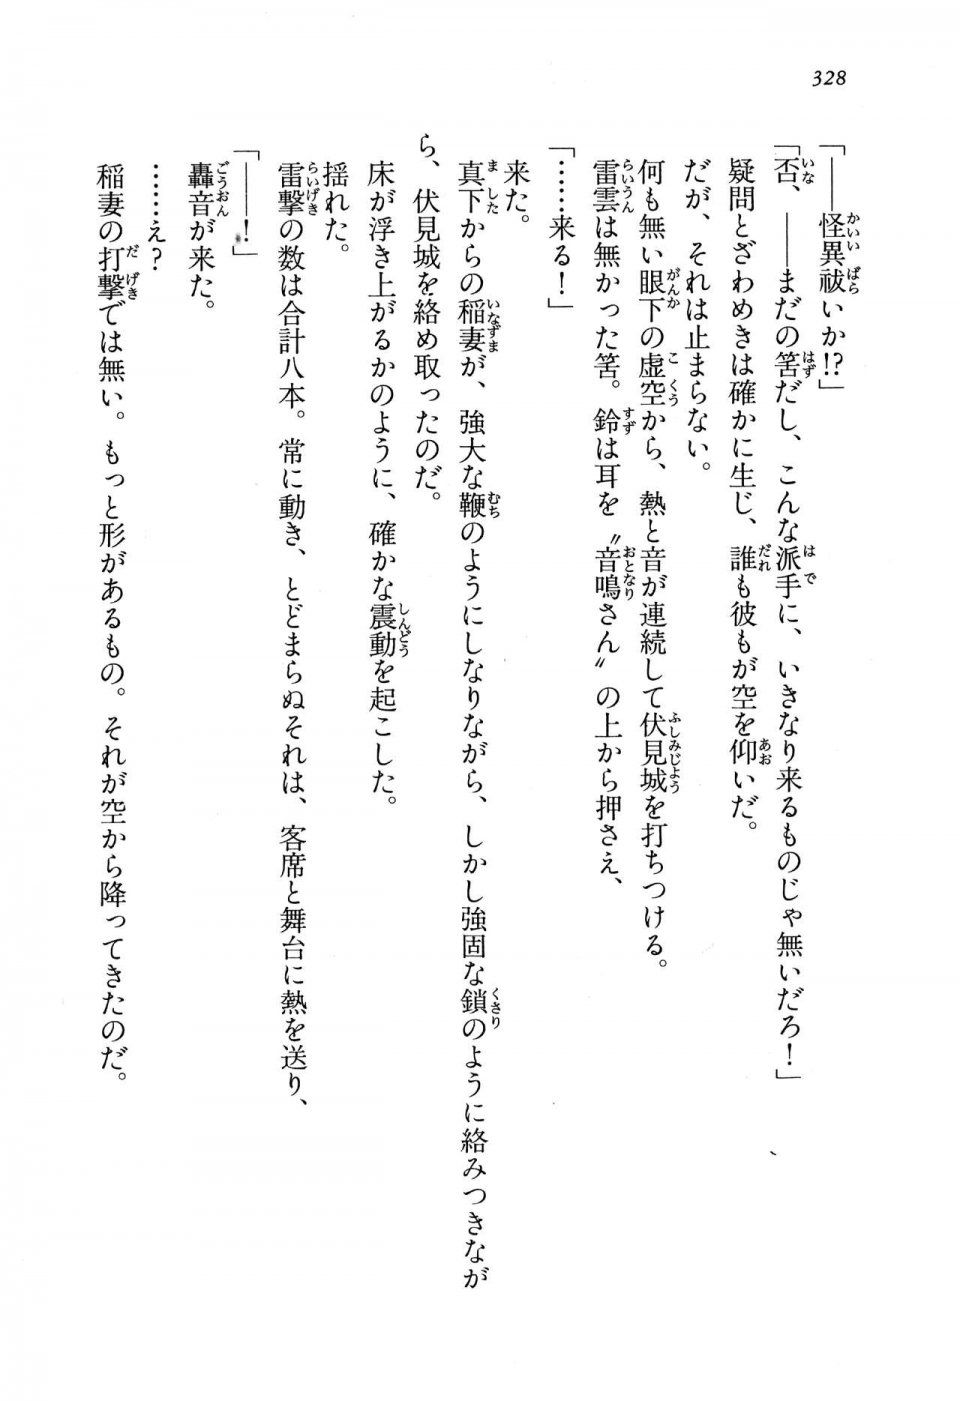 328
「――怪異祓いか!?」
「否、――まだの筈だし、こんな派手に、いきなり来るものじゃ無いだろ！」
疑問とざわめきは確かに生じ、誰も彼もが空を仰いだ。
だが、それは止まらない。
何も無い眼下の虚空から、熱と音が連続して伏見城を打ちつける。
雷雲は無かった筈。鈴は耳を〝音鳴さん〟の上から押さえ、
「……来る！」
来た。
真下からの稲妻が、強大な鞭のようにしなりながら、しかし強固な鎖のように絡みつきなが
ら、伏見城を絡め取ったのだ。
床が浮き上がるかのように、確かな震動を起こした。
揺れた。
雷撃の数は合計八本。常に動き、とどまらぬそれは、客席と舞台に熱を送り、
「――！」
轟音が来た。
……え？
稲妻の打撃では無い。もっと形があるもの。それが空から降ってきたのだ。